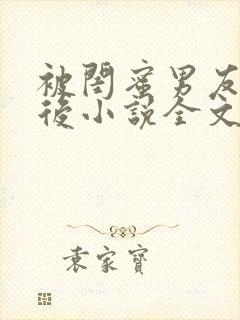 被閏蜜男友
後小說全文
袁家寶